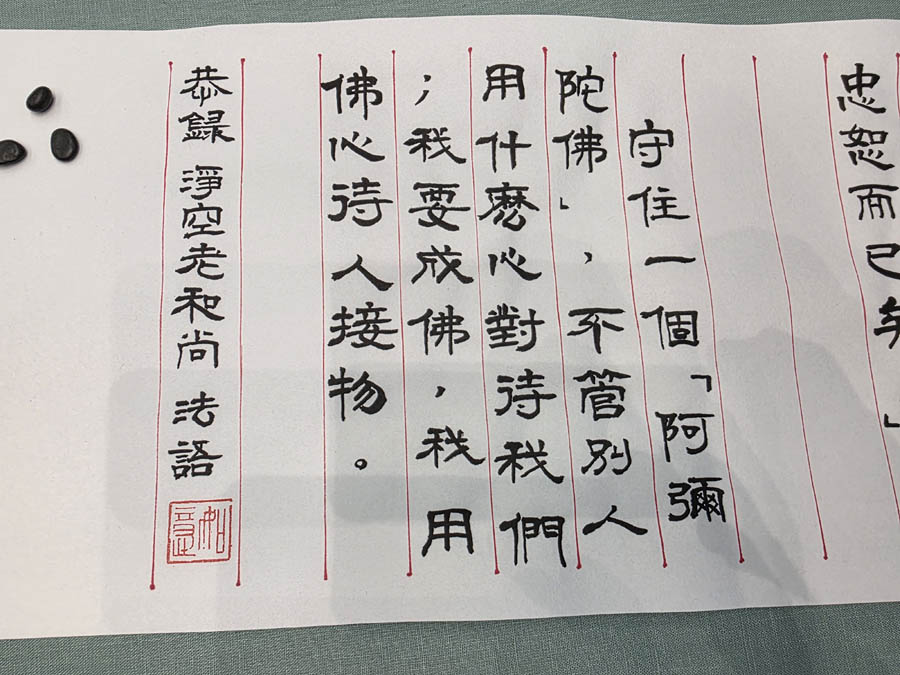 忠恕而已矣」
守住一個「阿彌
陀佛」，不管別人
用什麼心對待我們
；我要成佛，我用
佛心待人接物。
恭錄 淨空老和尚 法語
如是